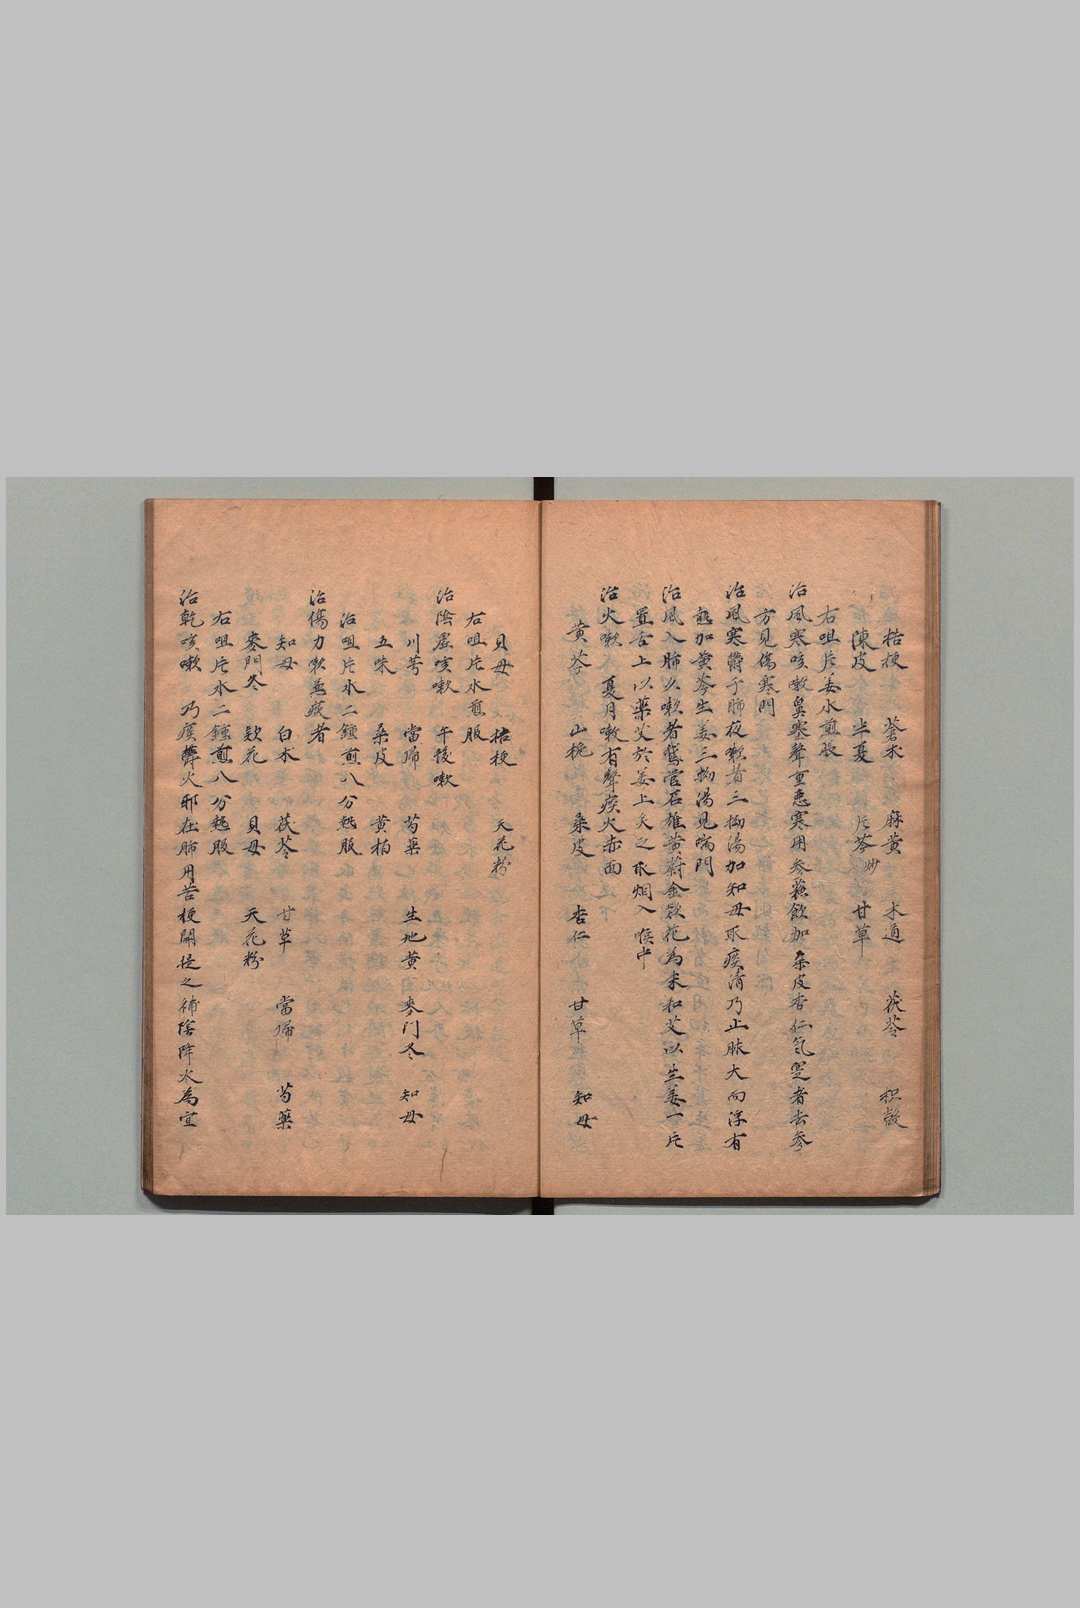 桔梗　蒼朮　麻黄　木通　茯苓　枳殻
陳皮　半夏　片芩炒　甘草
右咀片姜水煎服
治風寒咳嗽鼻塞聲重惡寒用參蘓飲加桑皮杏仁氣逆者去參
方見傷寒門
治風寒欝于肺夜嗽者三拗湯加知母取痰清乃止脉大而浮有
熱加黄芩生姜三拗湯見喘門
治風入肺久嗽者鵞管石雄黄蔚金欵花為末和艾以生姜一片
置舌上以藥艾於姜上灸之取烟入喉中
治火嗽　夏月嗽有聲痰火赤面
黄芩　山梔　桑皮　杏仁　甘草　知母
貝母　桔梗　天花粉
右咀片水煎服
治陰虚咳嗽　午後嗽
川芎　當歸　芍藥　生地黄　麥门冬　知母
五味　桑皮　黄柏
治咀片水二鍾煎八分熱服
治傷力嗽無痰者
知母　白朮　茯苓　甘草　當歸　芍藥
麥門冬　欵花　貝母　天花粉
右咀片水二鍾煎八分熱服
治乾咳嗽　乃痰欝火邪在肺用苦梗開提之補陰降火為宜